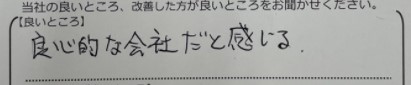 当社の良いところ、改善した方が良いところをお聞かせください。
【良いところ】
良心的な会社だと感じる.